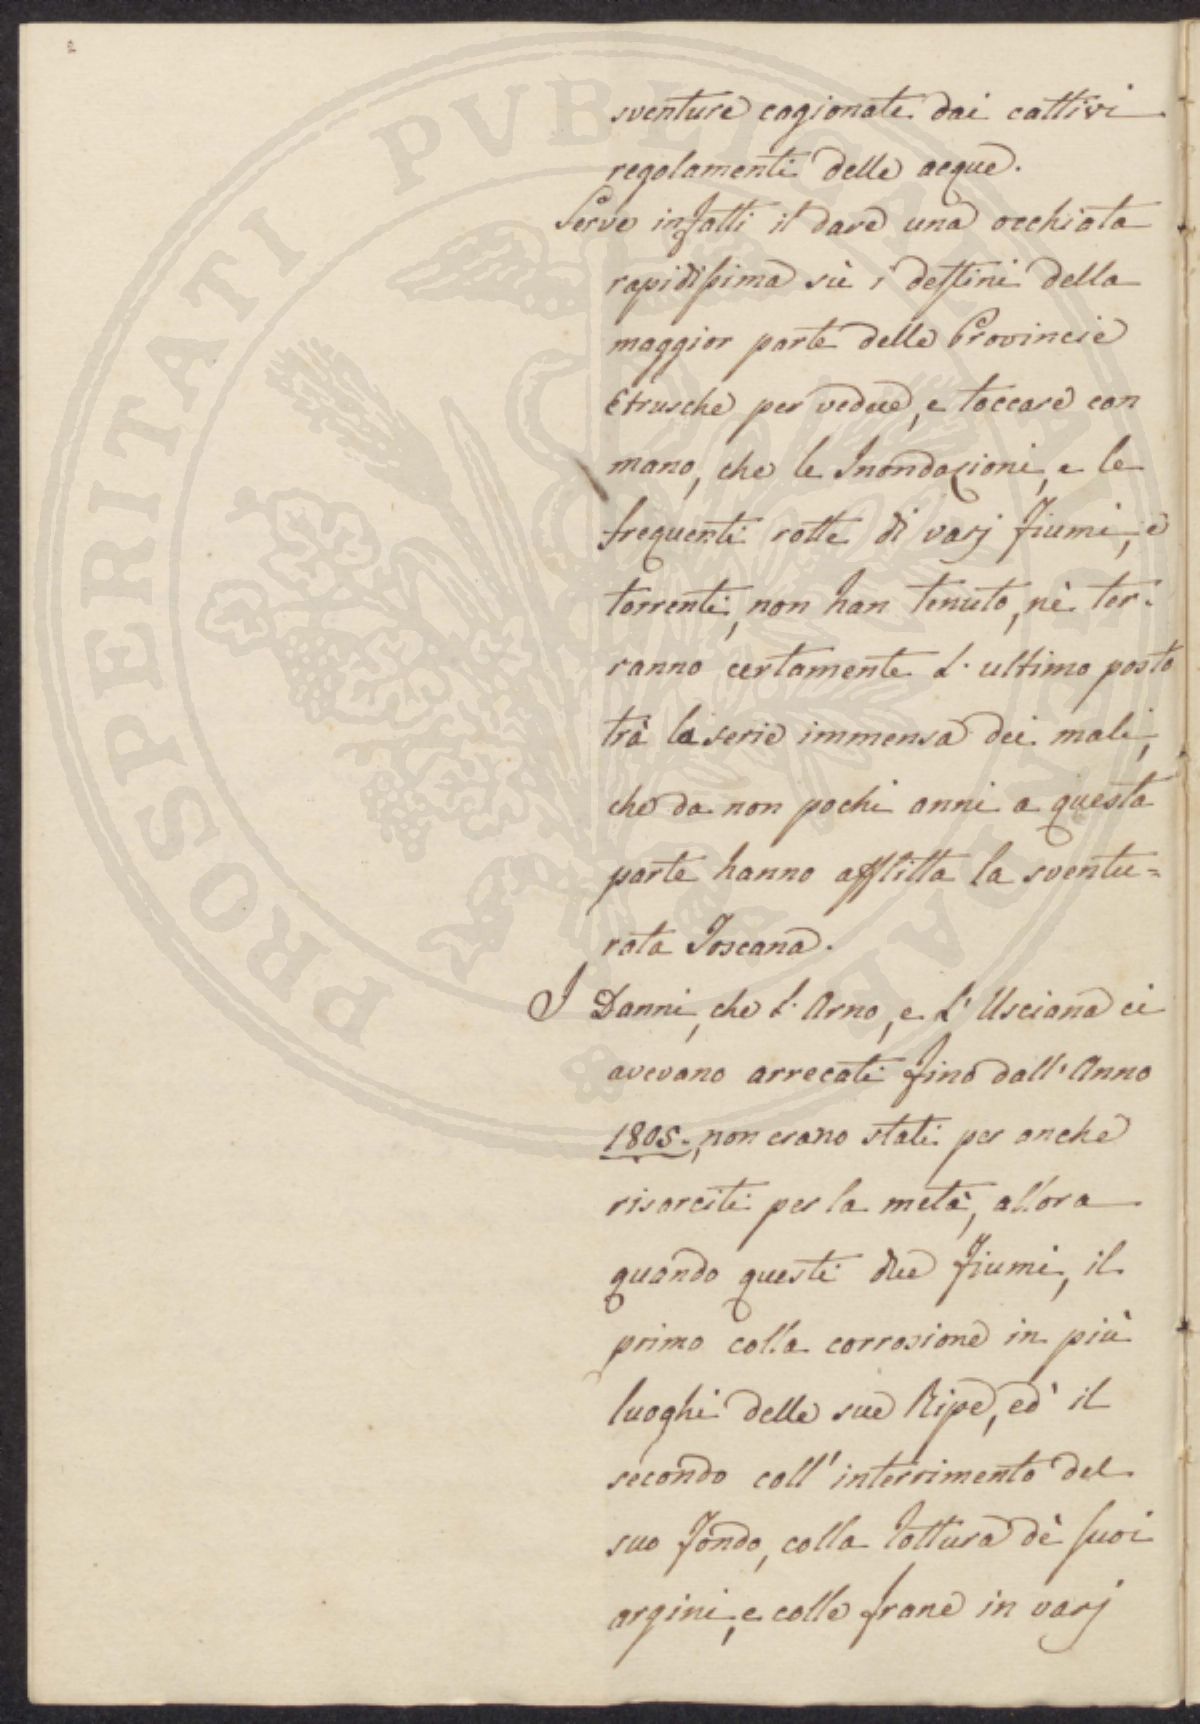 2
sventure cagionate dai cattivi
regolamenti delle acque.
Serve infatti il dare una occhiata
rapidissima sù i destini della
maggior parte delle Provincie
Etrusche per vedere, e toccare con
mano, che le Inondazioni, e le
frequenti rotte di varj fiumi, e
torrenti, non han tenuto, nè ter-
ranno certamente l'ultimo posto
trà la serie immensa dei mali,
che da non pochi anni a questa
parte hanno afflitta la sventu=
rata Toscana.
I Danni, che l'Arno, e l'Usciana ci
avevano arrecati fino dall'Anno
1805., non erano stati per anche
risarciti per la metà, allora
quando questi due fiumi, il
primo colla corrosione in più
luoghi delle sue Ripe, ed il
secondo coll'interrimento del
suo fondo, colla rottura dè suoi
argini, e colle frane in varj
PROSPERITATI PVBLICAE AVGENDAE